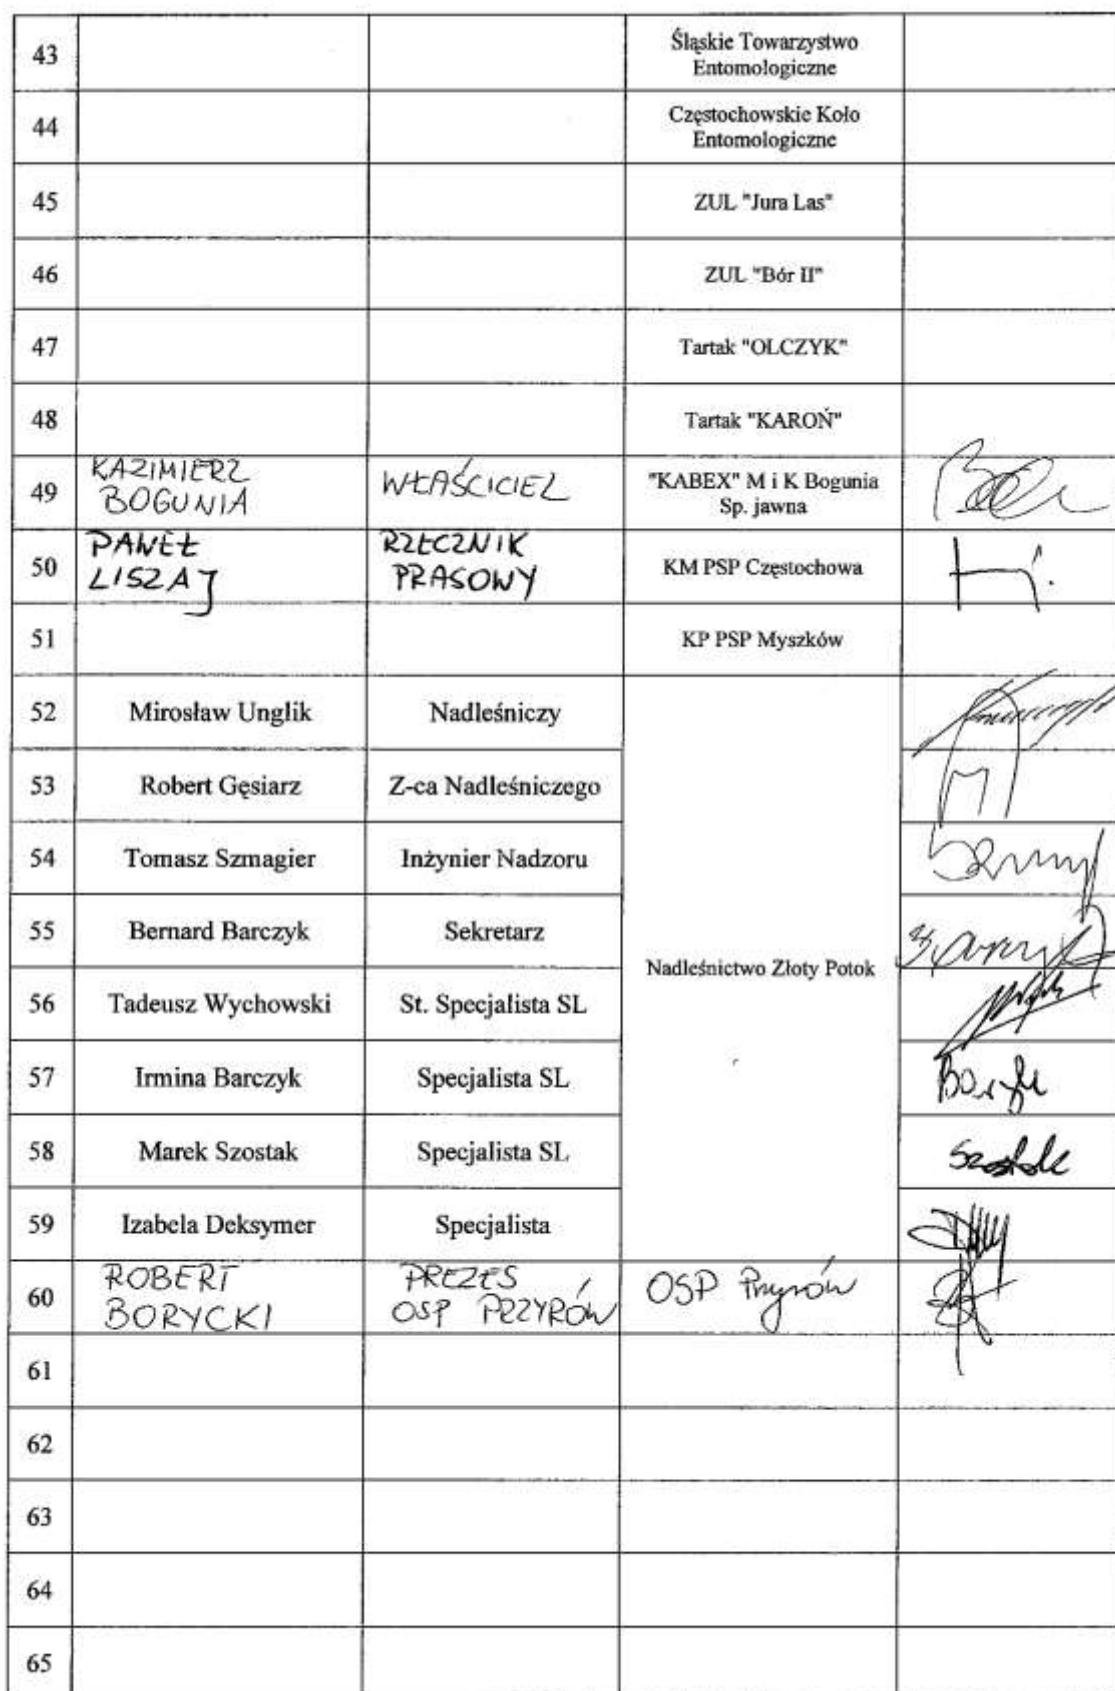 43 Śląskie Towarzystwo
Entomologiczne
44 Częstochowskie Koło
Entomologiczne
45 ZUL "Jura Las"
46 ZUL "Bór II"
47 Tartak "OLCZYK"
48 Tartak "KAROŃ"
49 KAZIMIERZ
BOGUNIA
WŁAŚCICIEL
"KABEX" M i K Bogunia
Sp. jawna
50 PAWEŁ
LISZAJ
RZECZNIK
PRASOWY
KM PSP Częstochowa
51 KP PSP Myszków
52 Mirosław Unglik Nadleśniczy
53 Robert Gęsiarz Z-ca Nadleśniczego
54 Tomasz Szmagier Inżynier Nadzoru
55 Bernard Barczyk Sekretarz
Nadleśnictwo Złoty Potok
56 Tadeusz Wychowski St. Specjalista SL
57 Irmina Barczyk Specjalista SL
58 Marek Szostak Specjalista SL Szostak
59 Izabela Deksymer Specjalista
60 ROBERT
BORYCKI
PREZES
OSP PRZYRÓW
OSP Przyrów
61
62
63
64
65